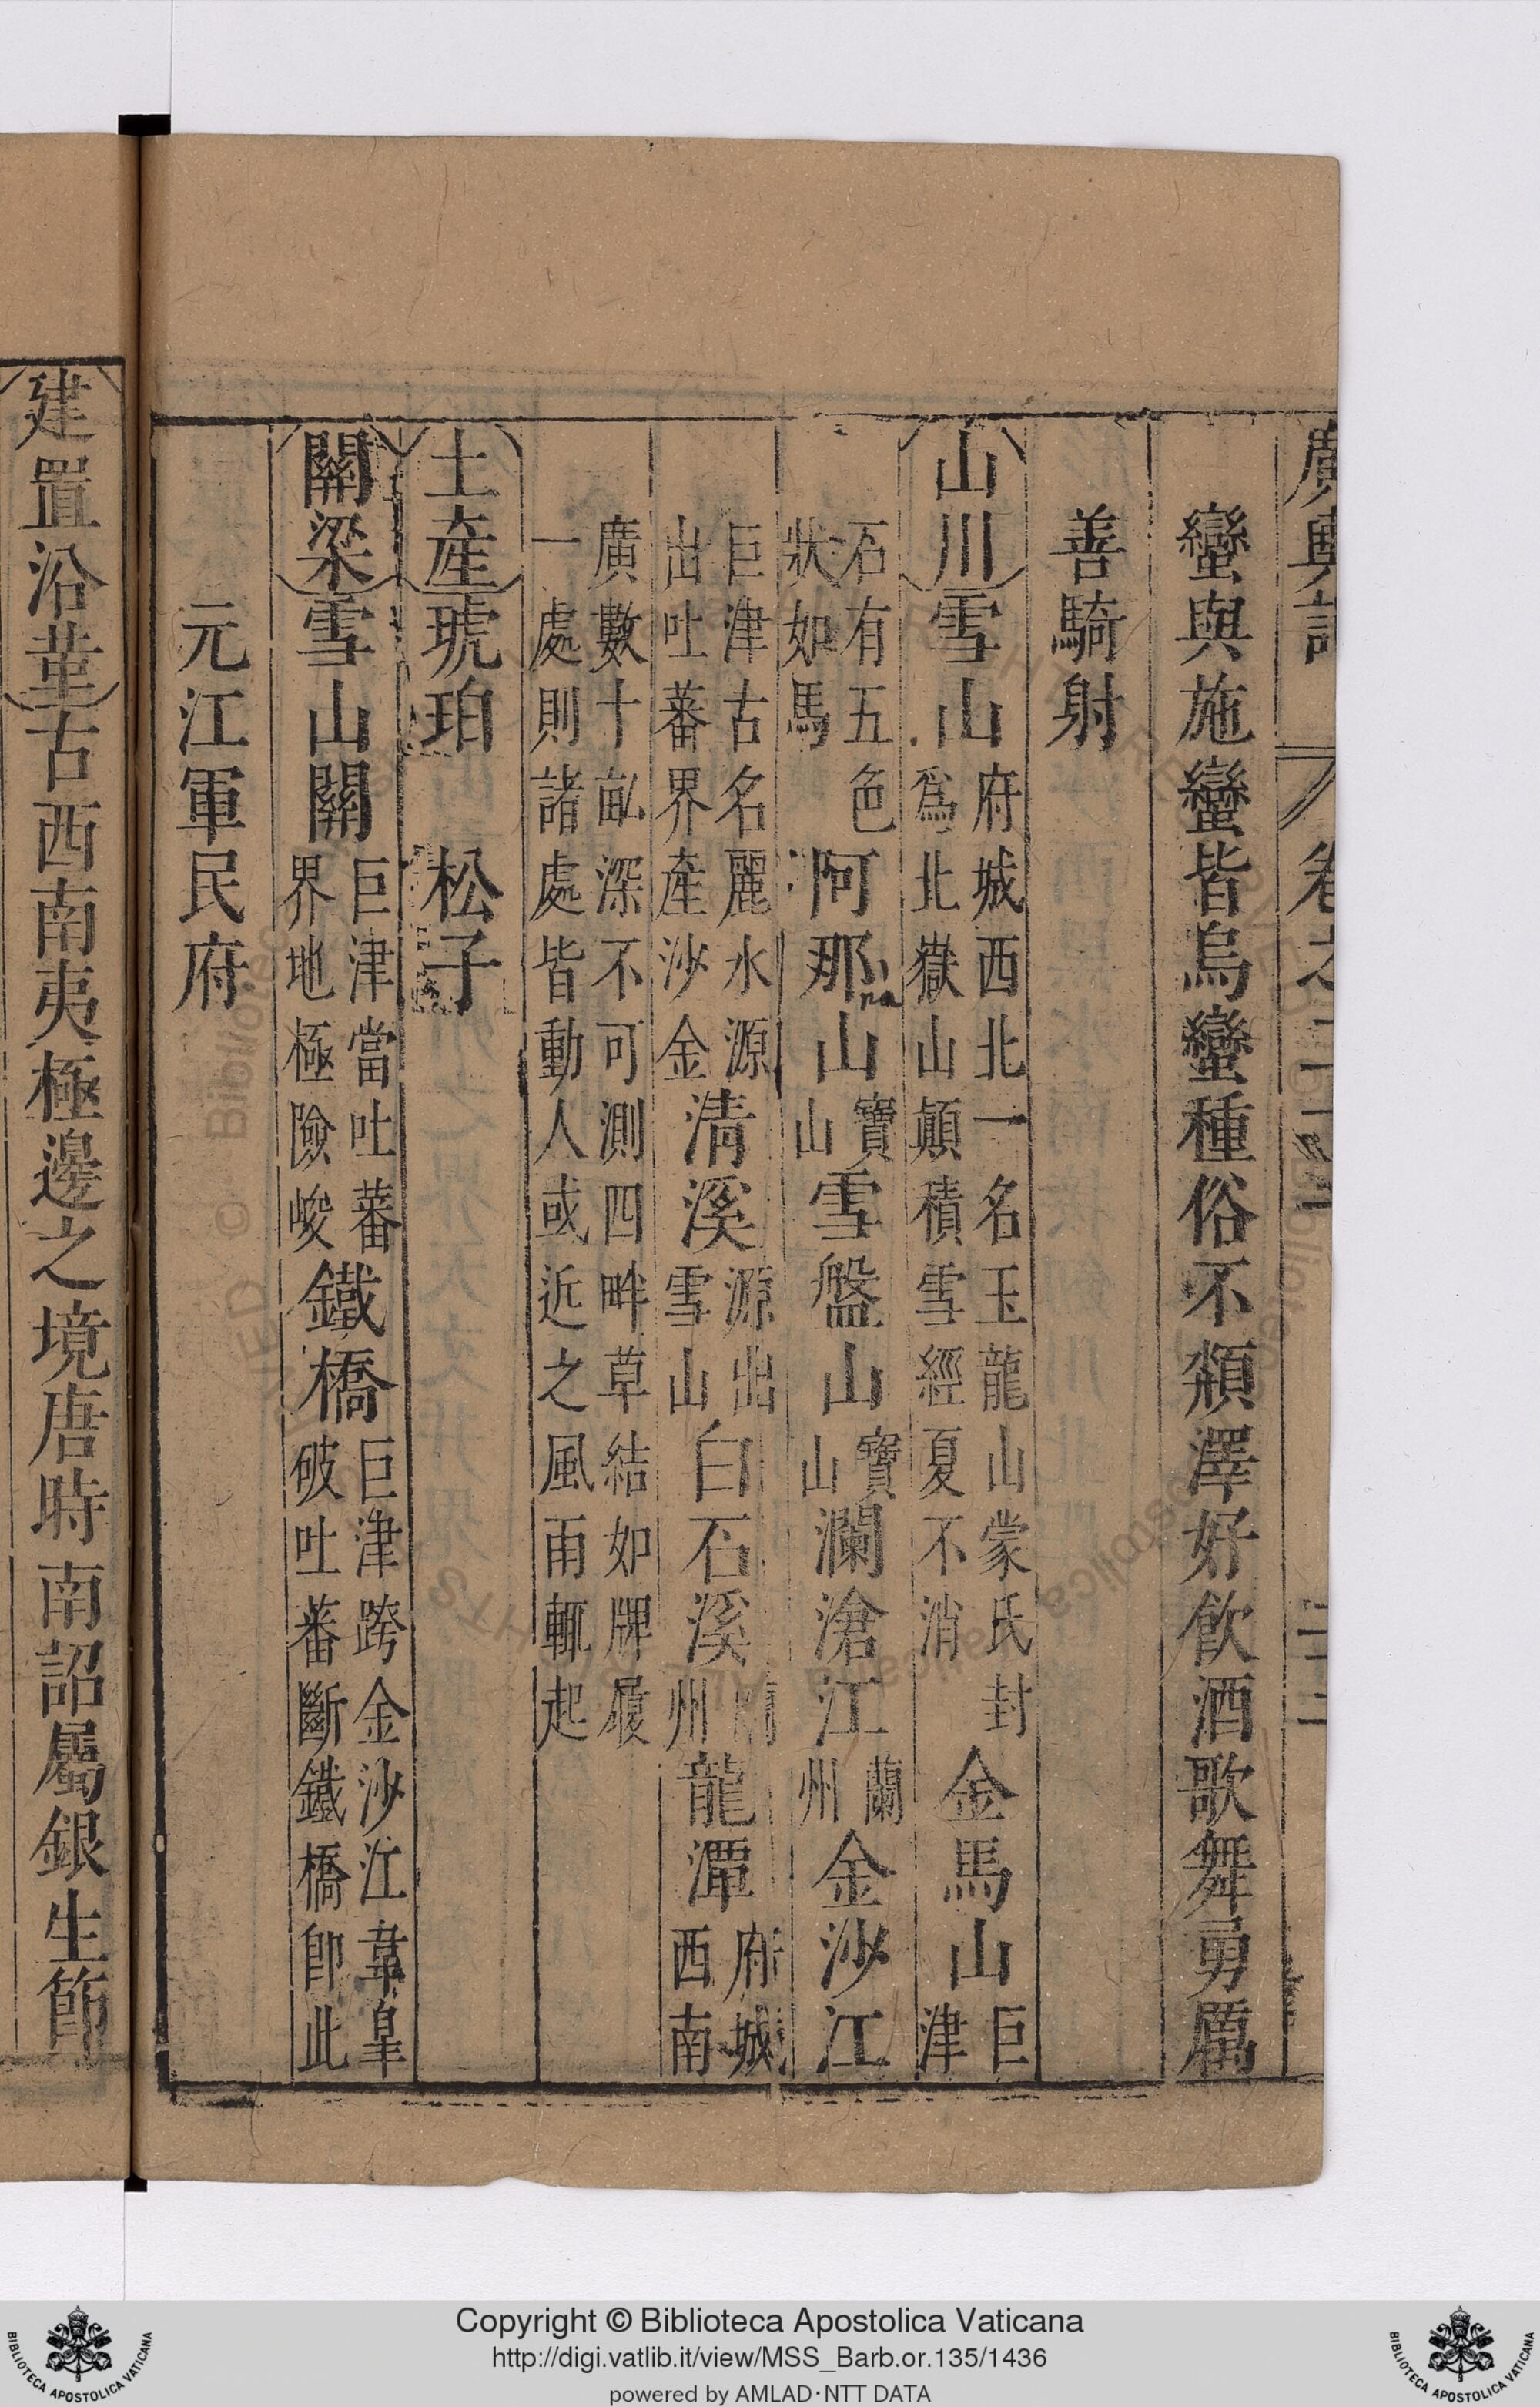 廣輿記 卷之二十一 二十二
蠻與施蠻皆烏蠻種俗不頮澤好飲酒歌舞勇厲
善騎射
山川 雪山 府城西北一名玉龍山蒙氏封爲北嶽山顛積雪經夏不消 金馬山 巨津
石有五色狀如馬 阿那山 寶山 雪盤山 寶山 瀾滄江 蘭州 金沙江
巨津古名麗水源出吐蕃界產沙金 清溪 源出雪山 白石溪 州 龍潭 府城西南
廣數十畝深不可測四畔草結如牌履一處則諸處皆動人或近之風雨輒起
土產 琥珀 松子
關梁 雪山關 巨津當吐蕃界地極險峻 鐵橋 巨津跨金沙江韋皐破吐蕃斷鐵橋卽此
元江軍民府
建置沿革 古西南夷極邊之境唐時南詔屬銀生節
na
Copyright © Biblioteca Apostolica Vaticana
http://digi.vatlib.it/view/MSS_Barb.or.135/1436
powered by AMLAD·NTT DATA
BIBLIOTECA APOSTOLICA VATICANA
BIBLIOTECA APOSTOLICA VATICANA